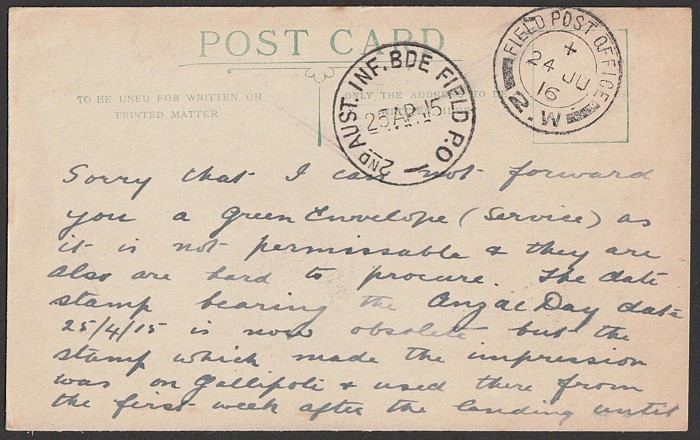 POST CARD
TO BE USED FOR WRITTEN OR
PRINTED MATTER
ONLY THE ADDRESS TO BE
2ND AUST. INF. BDE FIELD P.O
25 AP 15
FIELD POST OFFICE
24 JU
16
2.W
Sorry that I can not forward
you a Green Envelope (Service) as
it is not permissable & they are
also are hard to procure. The date
stamp bearing the Anzac Day date
25/4/15 is now obsolete but the
stamp which made the impression
was on Gallipoli & used there from
the first week after the landing until